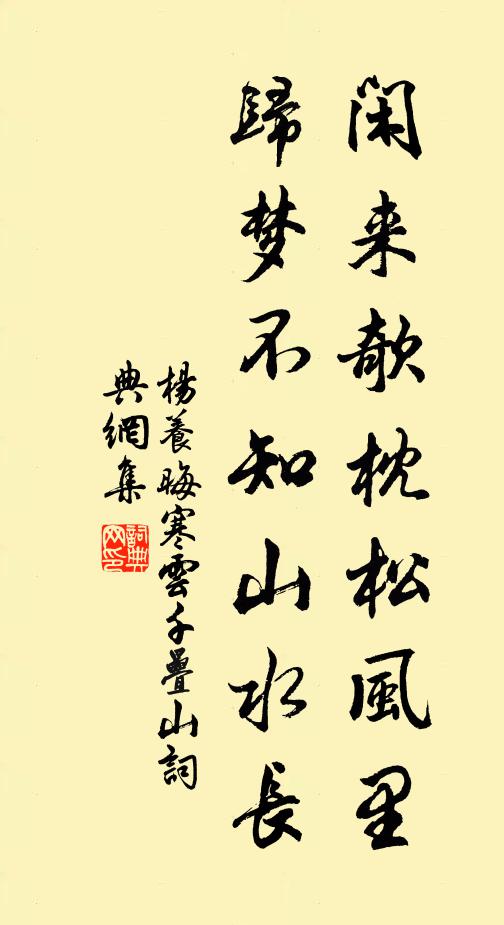 闲来欹枕松風里
歸梦不知山水長
楊養晦寒雲千疊山詞
典網集
詞典網印